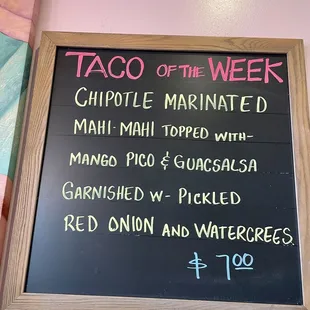 TACO OF THE WEEK
CHIPOTLE MARINATED
MAHI-MAHI TOPPED WITH-
MANGO PICO & GUACSALSA
GARNISHED W- PICKLED
RED ONION AND WATERCREES
$ 7.00